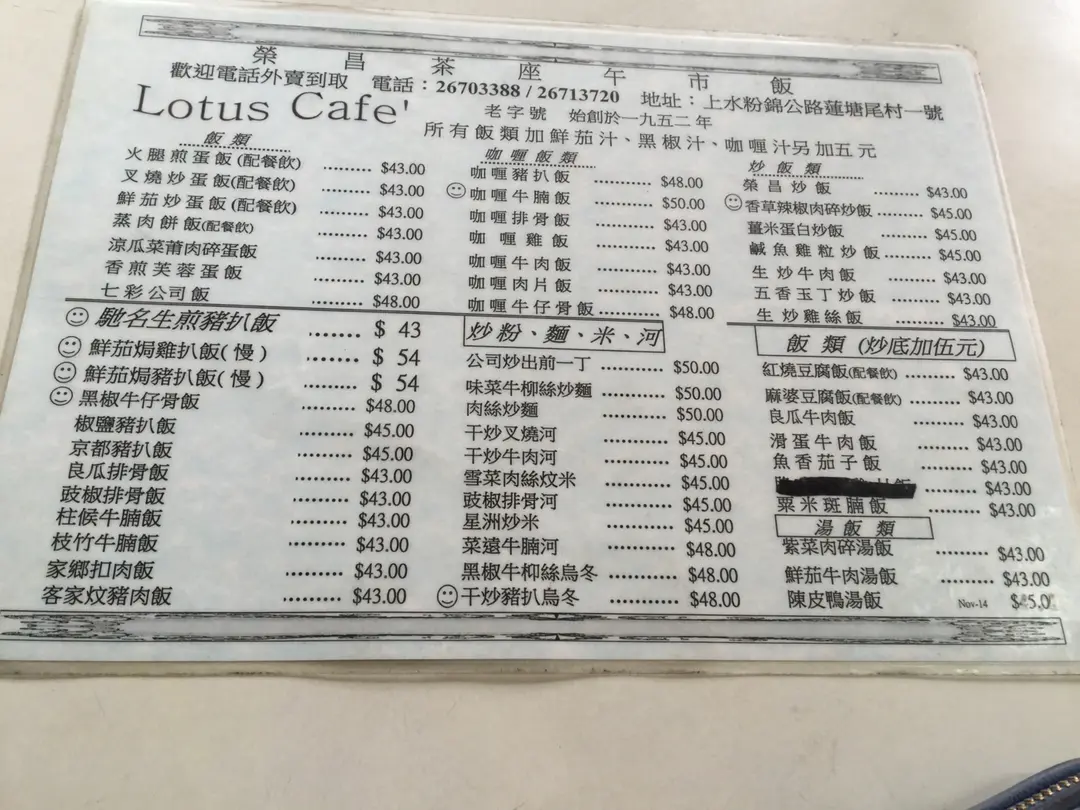 榮昌茶座午市飯
歡迎電話外賣到取 電話：26703388 / 26713720 地址：上水粉錦公路蓮塘尾村一號
Lotus Cafe' 老字號 始創於一九五二年
所有飯類加鮮茄汁、黑椒汁、咖喱汁另加五元
飯類
火腿煎蛋飯(配餐飲) ......... $43.00
叉燒炒蛋飯(配餐飲) ......... $43.00
鮮茄炒蛋飯(配餐飲) ......... $43.00
蒸肉餅飯(配餐飲) ......... $43.00
涼瓜菜莆肉碎蛋飯 ......... $43.00
香煎芙蓉蛋飯 ......... $43.00
七彩公司飯 ......... $48.00
馳名生煎豬扒飯 ....... $ 43
鮮茄焗雞扒飯(慢) ....... $ 54
鮮茄焗豬扒飯(慢) ....... $ 54
黑椒牛仔骨飯 ......... $48.00
椒鹽豬扒飯 ......... $45.00
京都豬扒飯 ......... $45.00
良瓜排骨飯 ......... $43.00
豉椒排骨飯 ......... $43.00
柱候牛腩飯 ......... $43.00
枝竹牛腩飯 ......... $43.00
家鄉扣肉飯 ......... $43.00
客家炆豬肉飯 ......... $43.00
咖喱飯類
咖喱豬扒飯 ......... $48.00
咖喱牛腩飯 ......... $50.00
咖喱排骨飯 ......... $43.00
咖喱雞飯 ......... $43.00
咖喱牛肉飯 ......... $43.00
咖喱肉片飯 ......... $43.00
咖喱牛仔骨飯 ......... $48.00
炒粉、麵、米、河
公司炒出前一丁 ......... $50.00
味菜牛柳絲炒麵 ......... $50.00
肉絲炒麵 ......... $50.00
干炒叉燒河 ......... $45.00
干炒牛肉河 ......... $45.00
雪菜肉絲炆米 ......... $45.00
豉椒排骨河 ......... $45.00
星洲炒米 ......... $45.00
菜遠牛腩河 ......... $48.00
黑椒牛枊絲烏冬 ......... $48.00
干炒豬扒烏冬 ......... $48.00
炒飯類
榮昌炒飯 ......... $43.00
香草辣椒肉碎炒飯 ......... $45.00
薑米蛋白炒飯 ......... $45.00
鹹魚雞粒炒飯 ......... $45.00
生炒牛肉飯 ......... $43.00
五香玉丁炒飯 ......... $43.00
生炒雞絲飯 ......... $43.00
飯類 (炒底加伍元)
紅燒豆腐飯(配餐飲) ......... $43.00
麻婆豆腐飯(配餐飲) ......... $43.00
良瓜牛肉飯 ......... $43.00
滑蛋牛肉飯 ......... $43.00
魚香茄子飯 ......... $43.00
......... $43.00
粟米斑腩飯 ......... $43.00
湯飯類
紫菜肉碎湯飯 ......... $43.00
鮮茄牛肉湯飯 ......... $43.00
陳皮鴨湯飯 Nov-14 $45.0